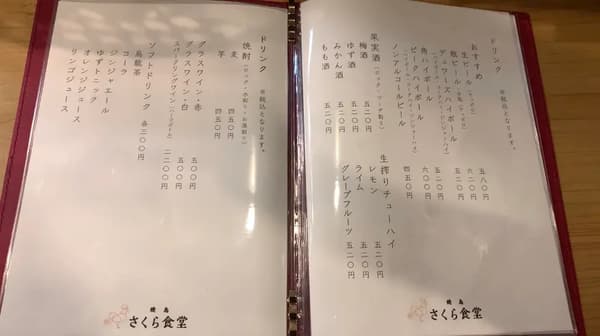 ドリンク
※税込となります。
おすすめ
生ビール
瓶ビール
デュワーズハイボール
角ハイボール
ピークハイボール
ノンアルコールビール
五八〇円
六二〇円
五二〇円
五二〇円
六〇〇円
四五〇円
果実酒
梅酒
ゆず酒
みかん酒
もも酒
五二〇円
五二〇円
五二〇円
五二〇円
生搾りチューハイ
レモン 五二〇円
ライム 五二〇円
グレープフルーツ 五二〇円
焼鳥
さくら食堂
ドリンク
※税込となります。
焼酎(ロック・水割り・お湯割り)
麦 四五〇円
芋 四五〇円
グラスワイン・赤 五〇〇円
グラスワイン・白 五〇〇円
スパークリングワイン 二二〇〇円
ソフトドリンク 各三〇〇円
烏龍茶
コーラ
ジンジャエール
ゆずトニック
オレンジジュース
リンゴジュース
焼鳥
さくら食堂